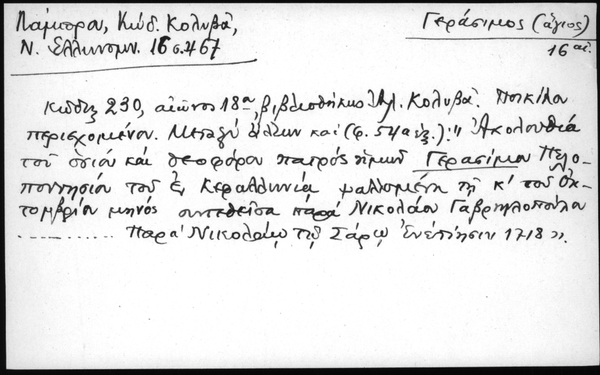 Λάμπρου, Κώδ. Κολυβᾶ,
Ν. Ἑλληνομν. 16 σ. 467
Γεράσιμος (ἅγιος)
16 αἰ.
Κῶδιξ 230, αἰῶνος 18ου, βιβλιοθήκης Ἀλ. Κολυβᾶ. Ποικίλου
περιεχομένου. Μεταξὺ ἄλλων καὶ (φ. 54α ἑξ.): "Ἀκολουθία
τοῦ ὁσίου καὶ θεοφόρου πατρὸς ἡμῶν Γερασίμου Πελο
ποννησίου τοῦ ἐν Κεφαλληνίᾳ ψαλλομένη τῇ κ' τοῦ Ὀκ
τωμβρίου μηνός συντεθεῖσα παρὰ Νικολάου Γαβριηλοπούλου
.................. Παρὰ Νικολάῳ τῷ Σάρῳ Ἐνετίησιν 1718».